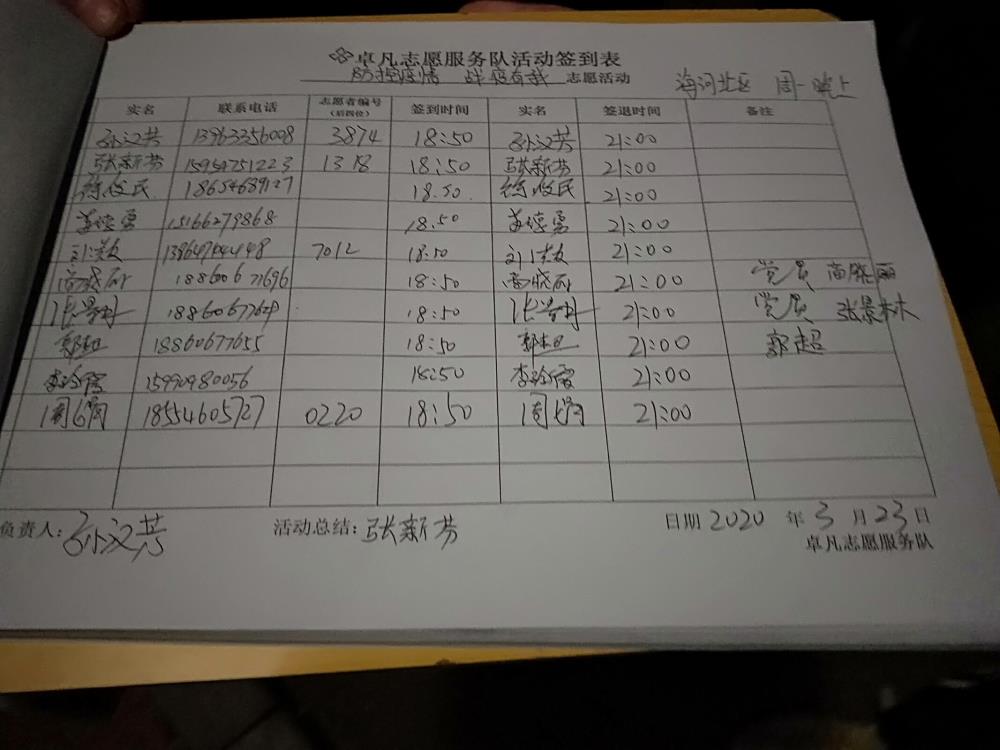 卓凡志愿服务队活动签到表
防控疫情 战疫有我 志愿活动 海河北区 周一晚上
实名 联系电话 志愿者编号（后四位） 签到时间 实名 签退时间 备注
孙汉共 13963356008 3874 18:50 孙汉共 21:00
张新芳 15954751223 1318 18:50 张新芳 21:00
徐俊民 18654689127 18.50 徐俊民 21:00
15166279868 18:50 21:00
7012 18:50 21:00
高晓丽 18860677696 18:50 高晓丽 21:00 党员 高晓丽
张景林 18860677629 18:50 张景林 21:00 党员 张景林
郭超 18860677655 18:50 郭超 21:00 郭超
李 15990980056 18:50 李 21:00
周 18554605727 0220 18:50 周 21:00
负责人：孙汉共 活动总结：张新芳 日期 2020 年 3 月 23 日
卓凡志愿服务队